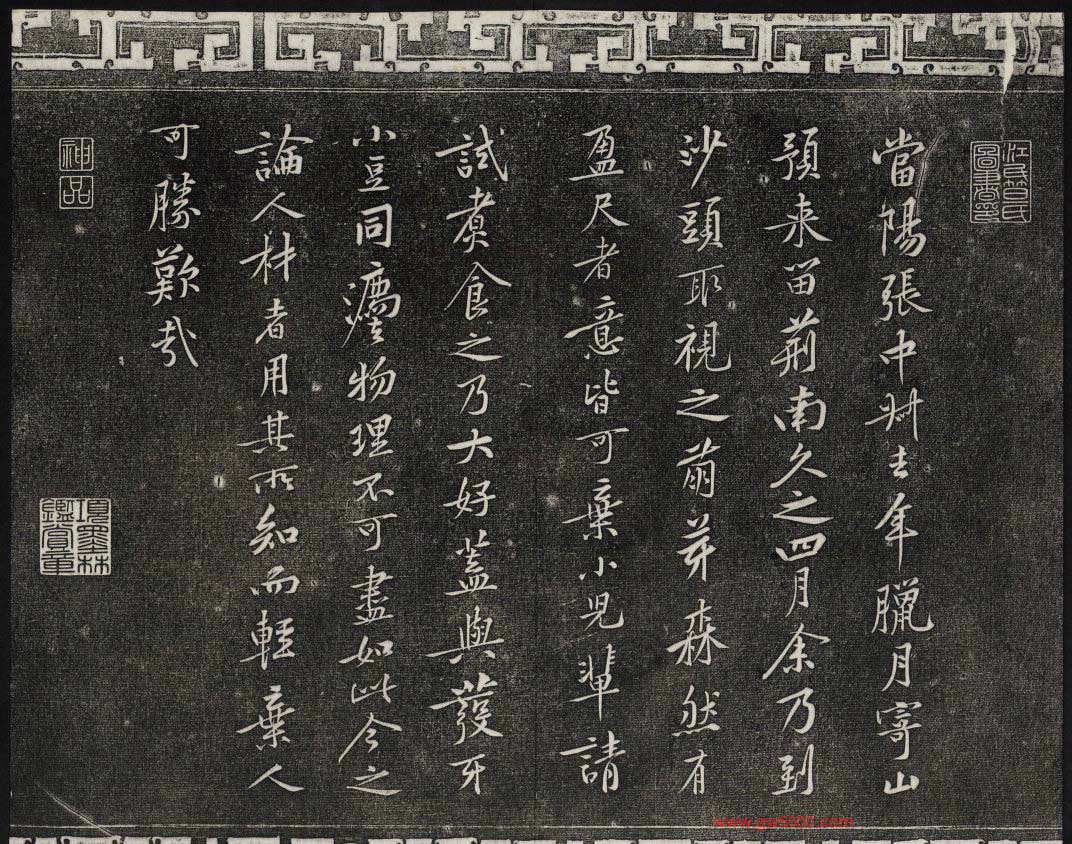 當陽張中叔去年臘月寄山
預来留荊南久之四月余乃到
沙頭取視之萌芽森然有
盈尺者意皆可棄小兒輩請
試煮食之乃大好蓋與蕟牙
小豆同灋物理不可盡如此今之
論人材者用其所知而輕棄人
可勝歎哉
神品
項墨林鑑賞章